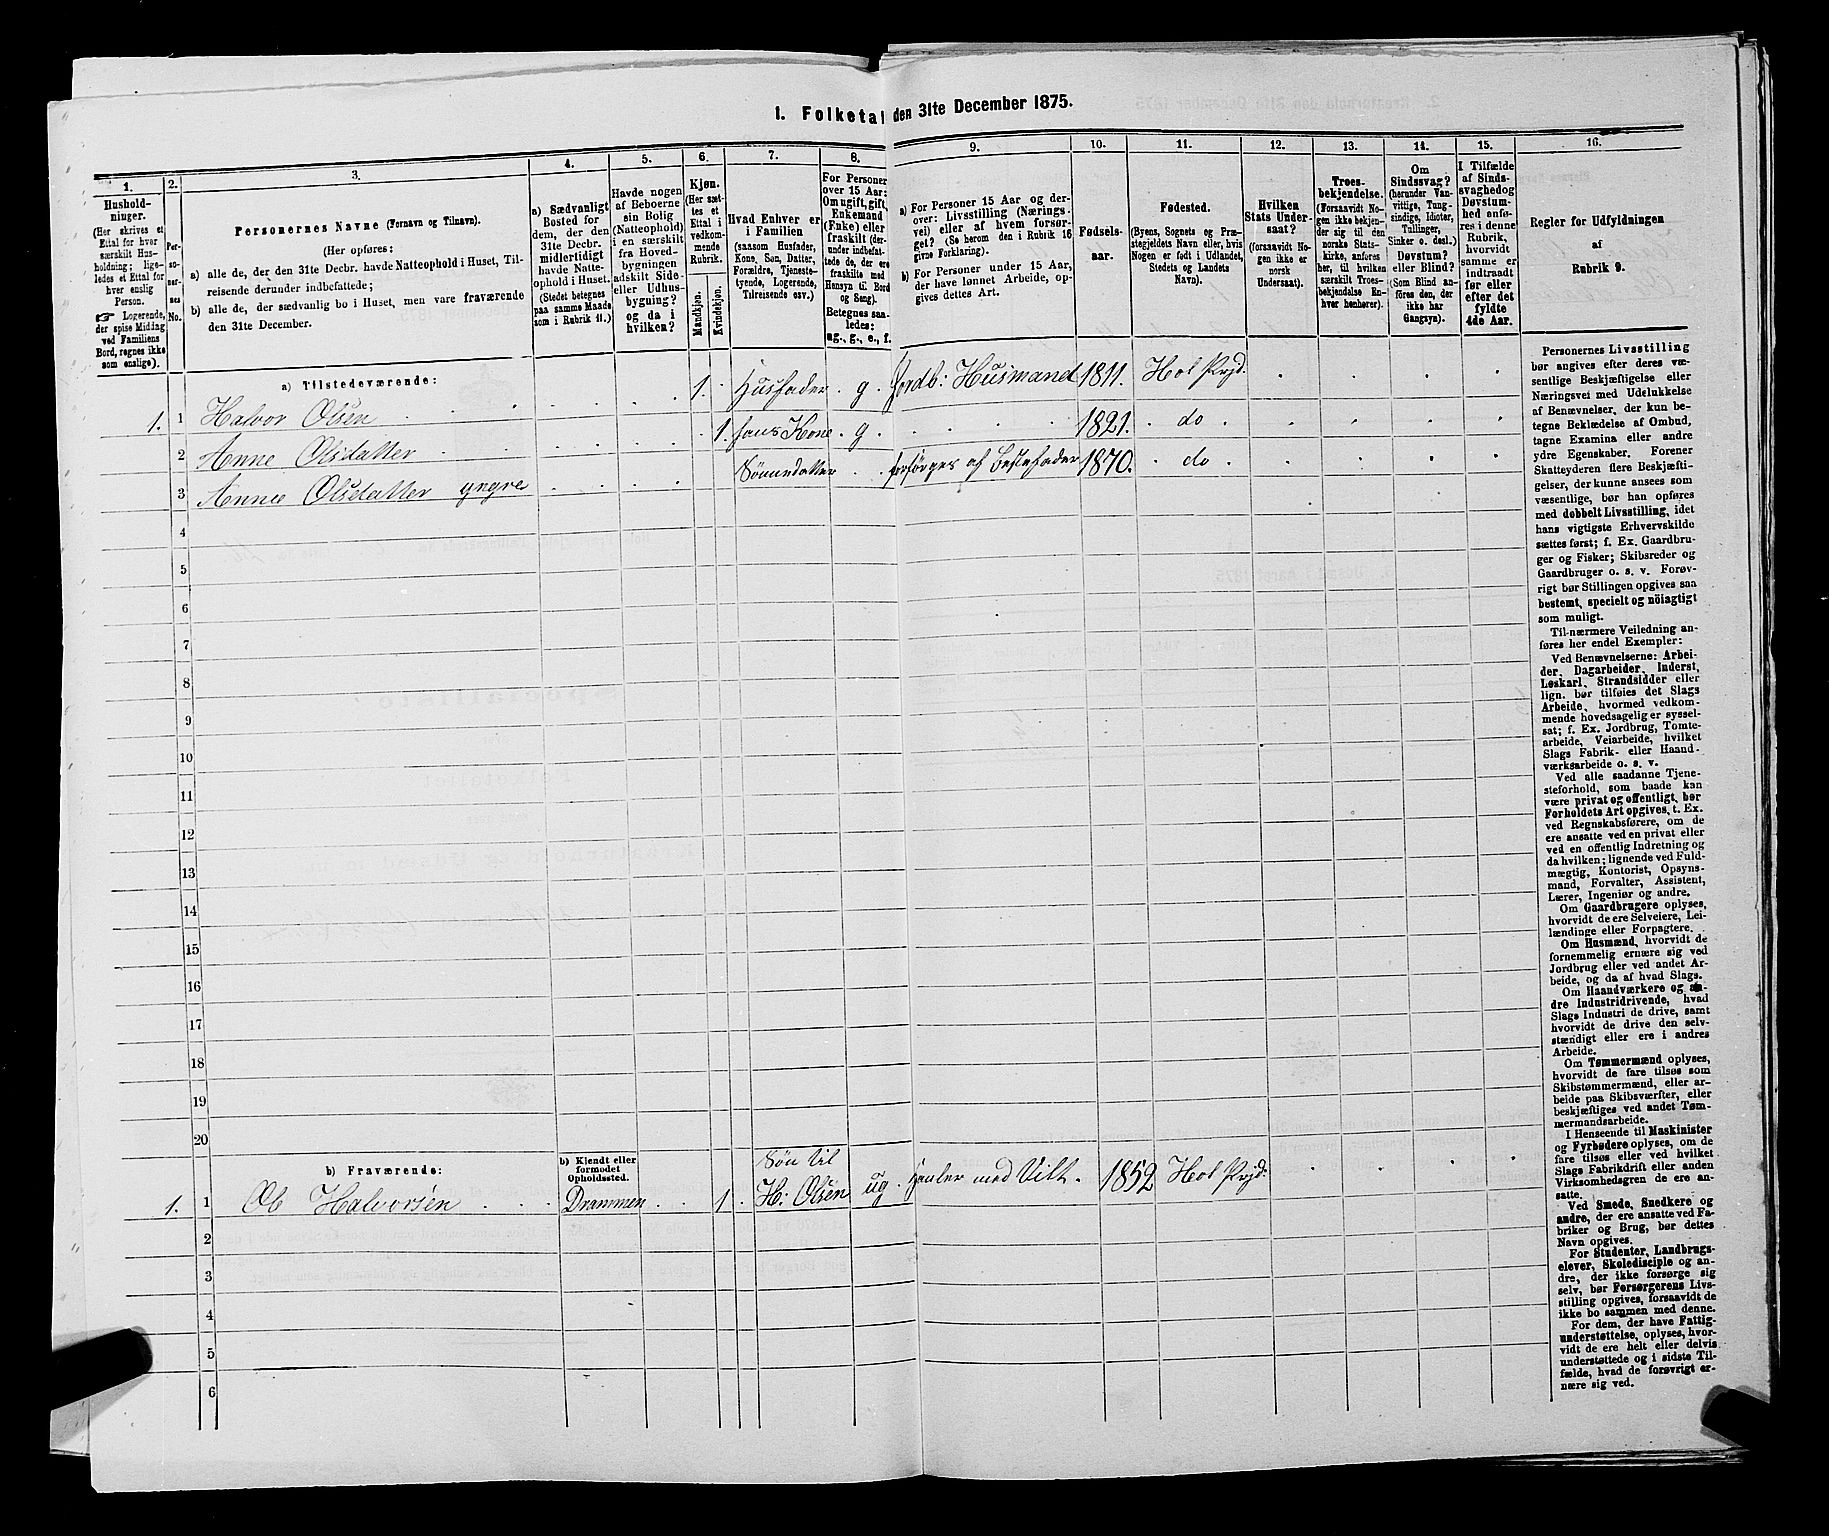 I. Folketal den 31te December 1875.
1.
Hushold-
ninger.
(Her skrives et
Ettal for hver
særskilt Hus-
holdning; lige-
ledes et Ettal for
hver enslig
Person.
☞ Logerende,
der spise Middag
ved Familiens
Bord, regnes ikke
som enslige).
2.
Per-
so-
ner-
nes
No.
3.
Personernes Navne (Fornavn og Tilnavn).
(Her opføres:
a) alle de, der den 31te Decbr. havde Natteophold i Huset, Til-
reisende derunder indbefattede;
b) alle de, der sædvanlig bo i Huset, men vare fraværende
den 31te December.
4.
a) Sædvanligt
Bosted for
dem, der den
31te Decbr.
midlertidigt
havde Natte-
ophold i Huset.
(Stedet betegnes
paa samme Maade
som i Rubrik 11.)
5.
Havde nogen
af Beboerne
sin Bolig
(Natteophold)
i en særskilt
fra Hoved-
bygningen
adskilt Side-
eller Udhus-
bygning?
og da i
hvilken?
6.
Kjøn.
(Her sæt-
tes et
Ettal i
vedkom-
mende
Rubrik.
Mandkjøn.
Kvindekjøn.
7.
Hvad Enhver er
i Familien
(saasom Husfader,
Kone, Søn, Datter,
Forældre, Tjeneste-
tyende, Logerende,
Tilreisende osv.)
8.
For Personer
over 15 Aar:
Om ugift, gift,
Enkemand
(Enke) eller
fraskilt (der-
under indbefat-
tede de, der ere
fraskilte med
Hensyn til Bord
og Seng).
Betegnes saa-
ledes:
ug., g., e., f.
9.
a) For Personer 15 Aar og der-
over: Livsstilling (Nærings-
vei) eller af hvem forsør-
get? (Se herom den i Rubrik 16
givne Forklaring).
b) For Personer under 15 Aar,
der have lønnet Arbeide, op-
gives dettes Art.
10.
Fødsels-
aar.
11.
Fødested.
(Byens, Sognets og Præ-
stegjeldets Navn eller, hvis
Nogen er født i Udlandet,
Stedets og Landets
Navn).
12.
Hvilken
Stats Under-
saat?
(forsaavidt No-
gen ikke er
norsk
Undersaat).
13.
Troes-
bekjendelse.
(Forsaavidt No-
gen ikke bekjen-
der sig til den
norske Stats-
kirke, anføres
her, til hvilken
særskilt Troes-
bekjendelse En-
hver henhører).
14.
Om
Sindssvag?
(herunder Van-
vittige, Tung-
sindige, Idioter,
Tullinger,
Sinker o. desl.)
Døvstum?
eller Blind?
(Som Blind an-
føres den, der
ikke har
Gangsyn).
15.
I Tilfælde
af Sinds-
svaghedog
Døvstum-
hed anfø-
res i denne
Rubrik,
hvorvidt
samme er
indtraadt
før eller
efter det
fyldte
4de Aar.
16.
Regler for Udfyldningen
af
Rubrik 9.
a) Tilstedeværende:
1. 1 Halvor Olsen 1. Husfader g Jordb: Husmand 1811. Hol Prgd.
2 Anne Olsdatter 1. hans Kone g 1821. do
3 Anne Olsdatter yngre Sønnedatter forsørges af Bestefader 1870. do
4
5
6
7
8
9
10
11
12
13
14
15
16
17
18
19
20
b) Fraværende:
b) Kjendt eller
formodet
Opholdssted.
1. 1 Ol Halvorsen Drammen 1. Søn til
H: Olsen ug Handler med Vildt. 1852 Hol Prgd.
2
3
4
5
6
Personernes Livsstilling
bør angives efter deres væ-
sentlige Beskjæftigelse eller
Næringsvei med Udelukkelse
af Benævnelser, der kun be-
tegne Beklædelse af Ombud,
tagne Examina eller andre
ydre Egenskaber. Forener
Skatteyderen flere Beskjæfti-
gelser, der kunne ansees som
væsentlige, bør han opføres
med dobbelt Livsstilling, idet
hans vigtigste Erhvervskilde
sættes først; f. Ex. Gaardbru-
ger og Fisker; Skibsreder og
Gaardbruger o. s. v. Forøv-
rigt bør Stillingen opgives saa
bestemt, specielt og nöiagtigt
som muligt.
Til nærmere Veiledning an-
føres her endel Exempler:
Ved Benævnelserne: Arbei-
der, Dagarbeider, Inderst,
Løskarl, Strandsidder eller
lign. bør tilføies det Slags
Arbeide, hvormed vedkom-
mende hovedsagelig er syssel-
sat; f. Ex. Jordbrug, Tomte-
arbeide, Veiarbeide, hvilket
Slags Fabrik- eller Haand-
værksarbeide o. s. v.
Ved alle saadanne Tjene-
steforhold, som baade kan
være privat og offentligt, bør
Forholdets Art opgives, t. Ex.
ved Regnskabsførere, om de
ere ansatte ved en privat eller
ved en offentlig Indretning og
da hvilken; lignende ved Fuld-
mægtig, Kontorist, Opsyns-
mand, Forvalter, Assistent,
Lærer, Ingeniør og andre.
Om Gaardbrugere oplyses,
hvorvidt de ere Selveiere, Lei-
lændinge eller Forpagtere.
Om Husmænd, hvorvidt de
fornemmelig ernære sig ved
Jordbrug eller ved andet Ar-
beide, og da af hvad Slags.
Om Haandværkere og an-
dre Industridrivende, hvad
Slags Industri de drive, samt
hvorvidt de drive den selv-
stændigt eller ere i andres
Arbeide.
Om Tømmermænd oplyses,
hvorvidt de fare tilsøs som
Skibstømmermænd, eller ar-
beide paa Skibsværfter, eller
beskjæftiges ved andet Tøm-
mermandsarbeide.
I Henseende til Maskinister
og Fyrbødere oplyses, om de
fare tilsøs eller ved hvilket
Slags Fabrikdrift eller anden
Virksomhedsgren de ere an-
satte.
Ved Smede, Snedkere og
andre, der ere ansatte ved Fa-
briker og Brug, bør dettes
Navn opgives.
For Studenter, Landbrugs-
elever, Skoledisciple og an-
dre, der ikke forsørge sig
selv, bør Forsørgerens Livs-
stilling opgives, forsaavidt de
ikke bo sammen med denne.
For dem, der have Fattig-
understøttelse, oplyses, hvor-
vidt de ere helt eller delvis
understøttede og i sidste Til-
fælde, hvad de forøvrigt er-
nære sig ved.